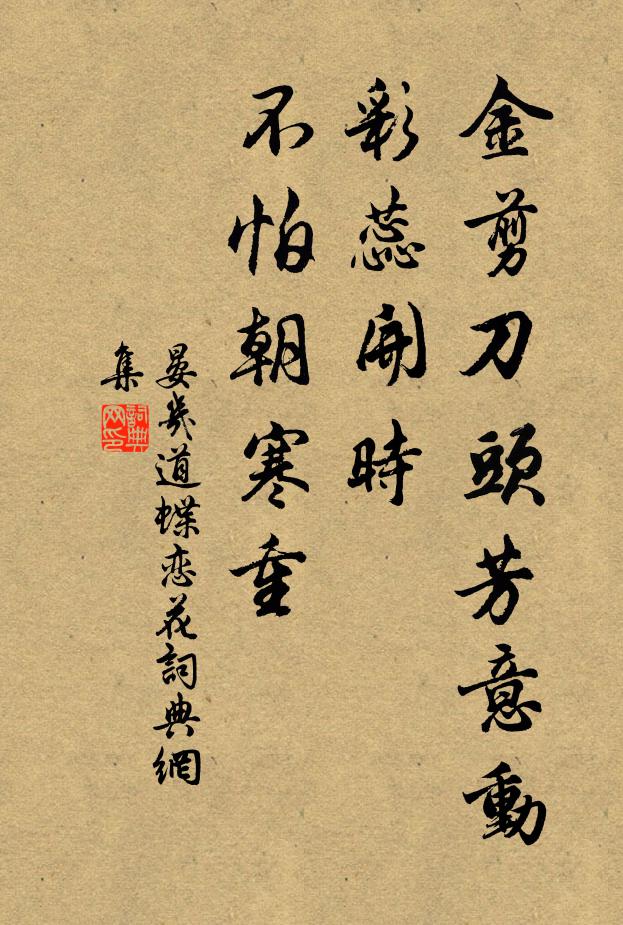 金剪刀頭芳意動
彩蕊開時
不怕朝寒重
晏幾道蝶恋花詞典網
集
詞典
网印